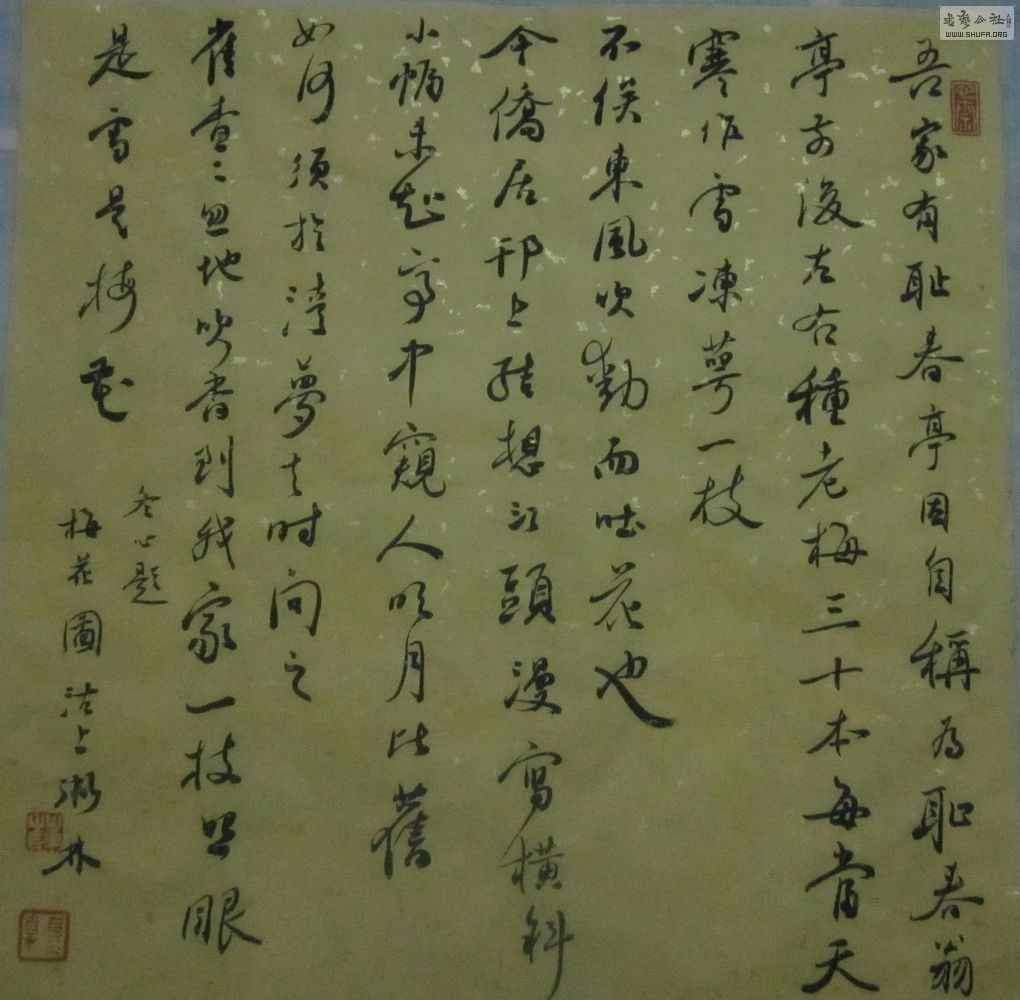 吾家有耻春亭因自稱為耻春翁
亭前後左右種老梅三十本每當天
寒作雪凍萼一枝
不俟東風吹動而吐花也
今僑居邗上結想江頭漫寫橫斜
小幅未知亭中窺人明月比舊
如何須於清夢去時問之
雀查〻忽地吹香到我家一枝照眼
是雪是梅花
冬心題
梅花圖 沽上林
書藝公社
WWW.SHUFA.ORG